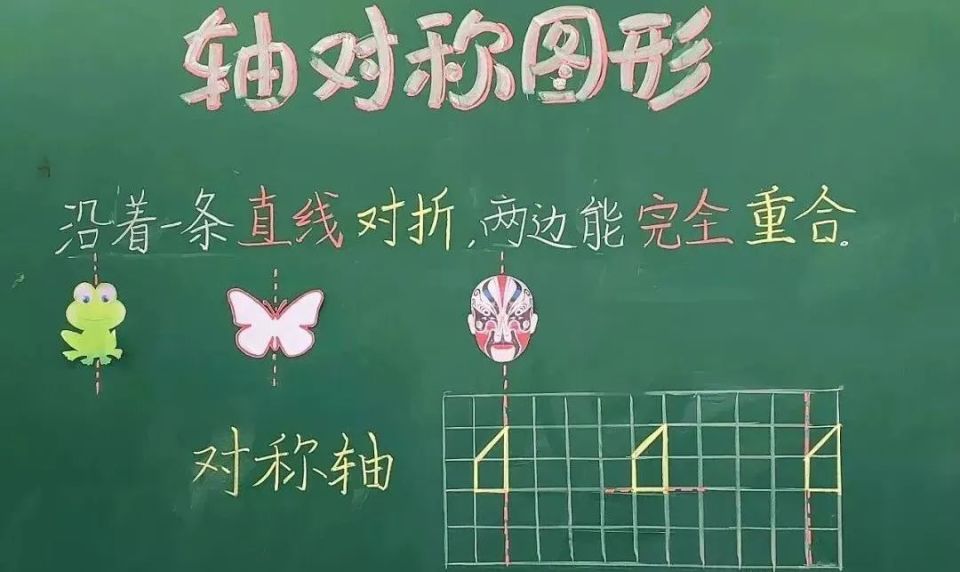 轴对称图形
沿着一条直线对折，两边能完全重合。
对称轴